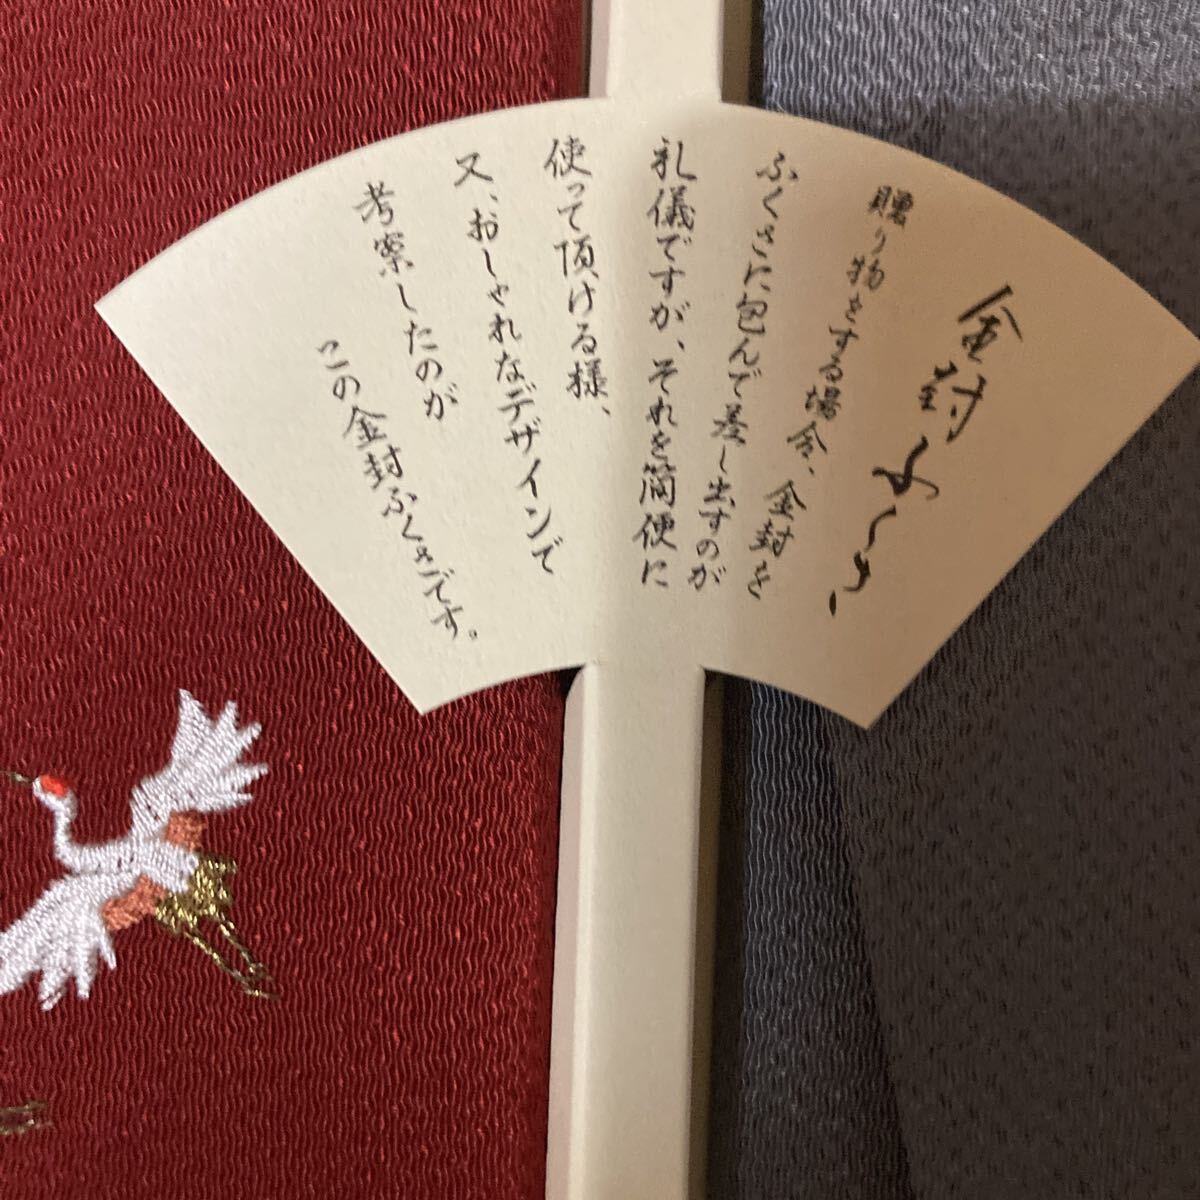 金封ふくさ
贈り物をする場合、金封を
ふくさに包んで差し出すのが
礼儀ですが、それを簡便に
使って頂ける様、
又、おしゃれなデザインで
考案したのが
この金封ふくさです。